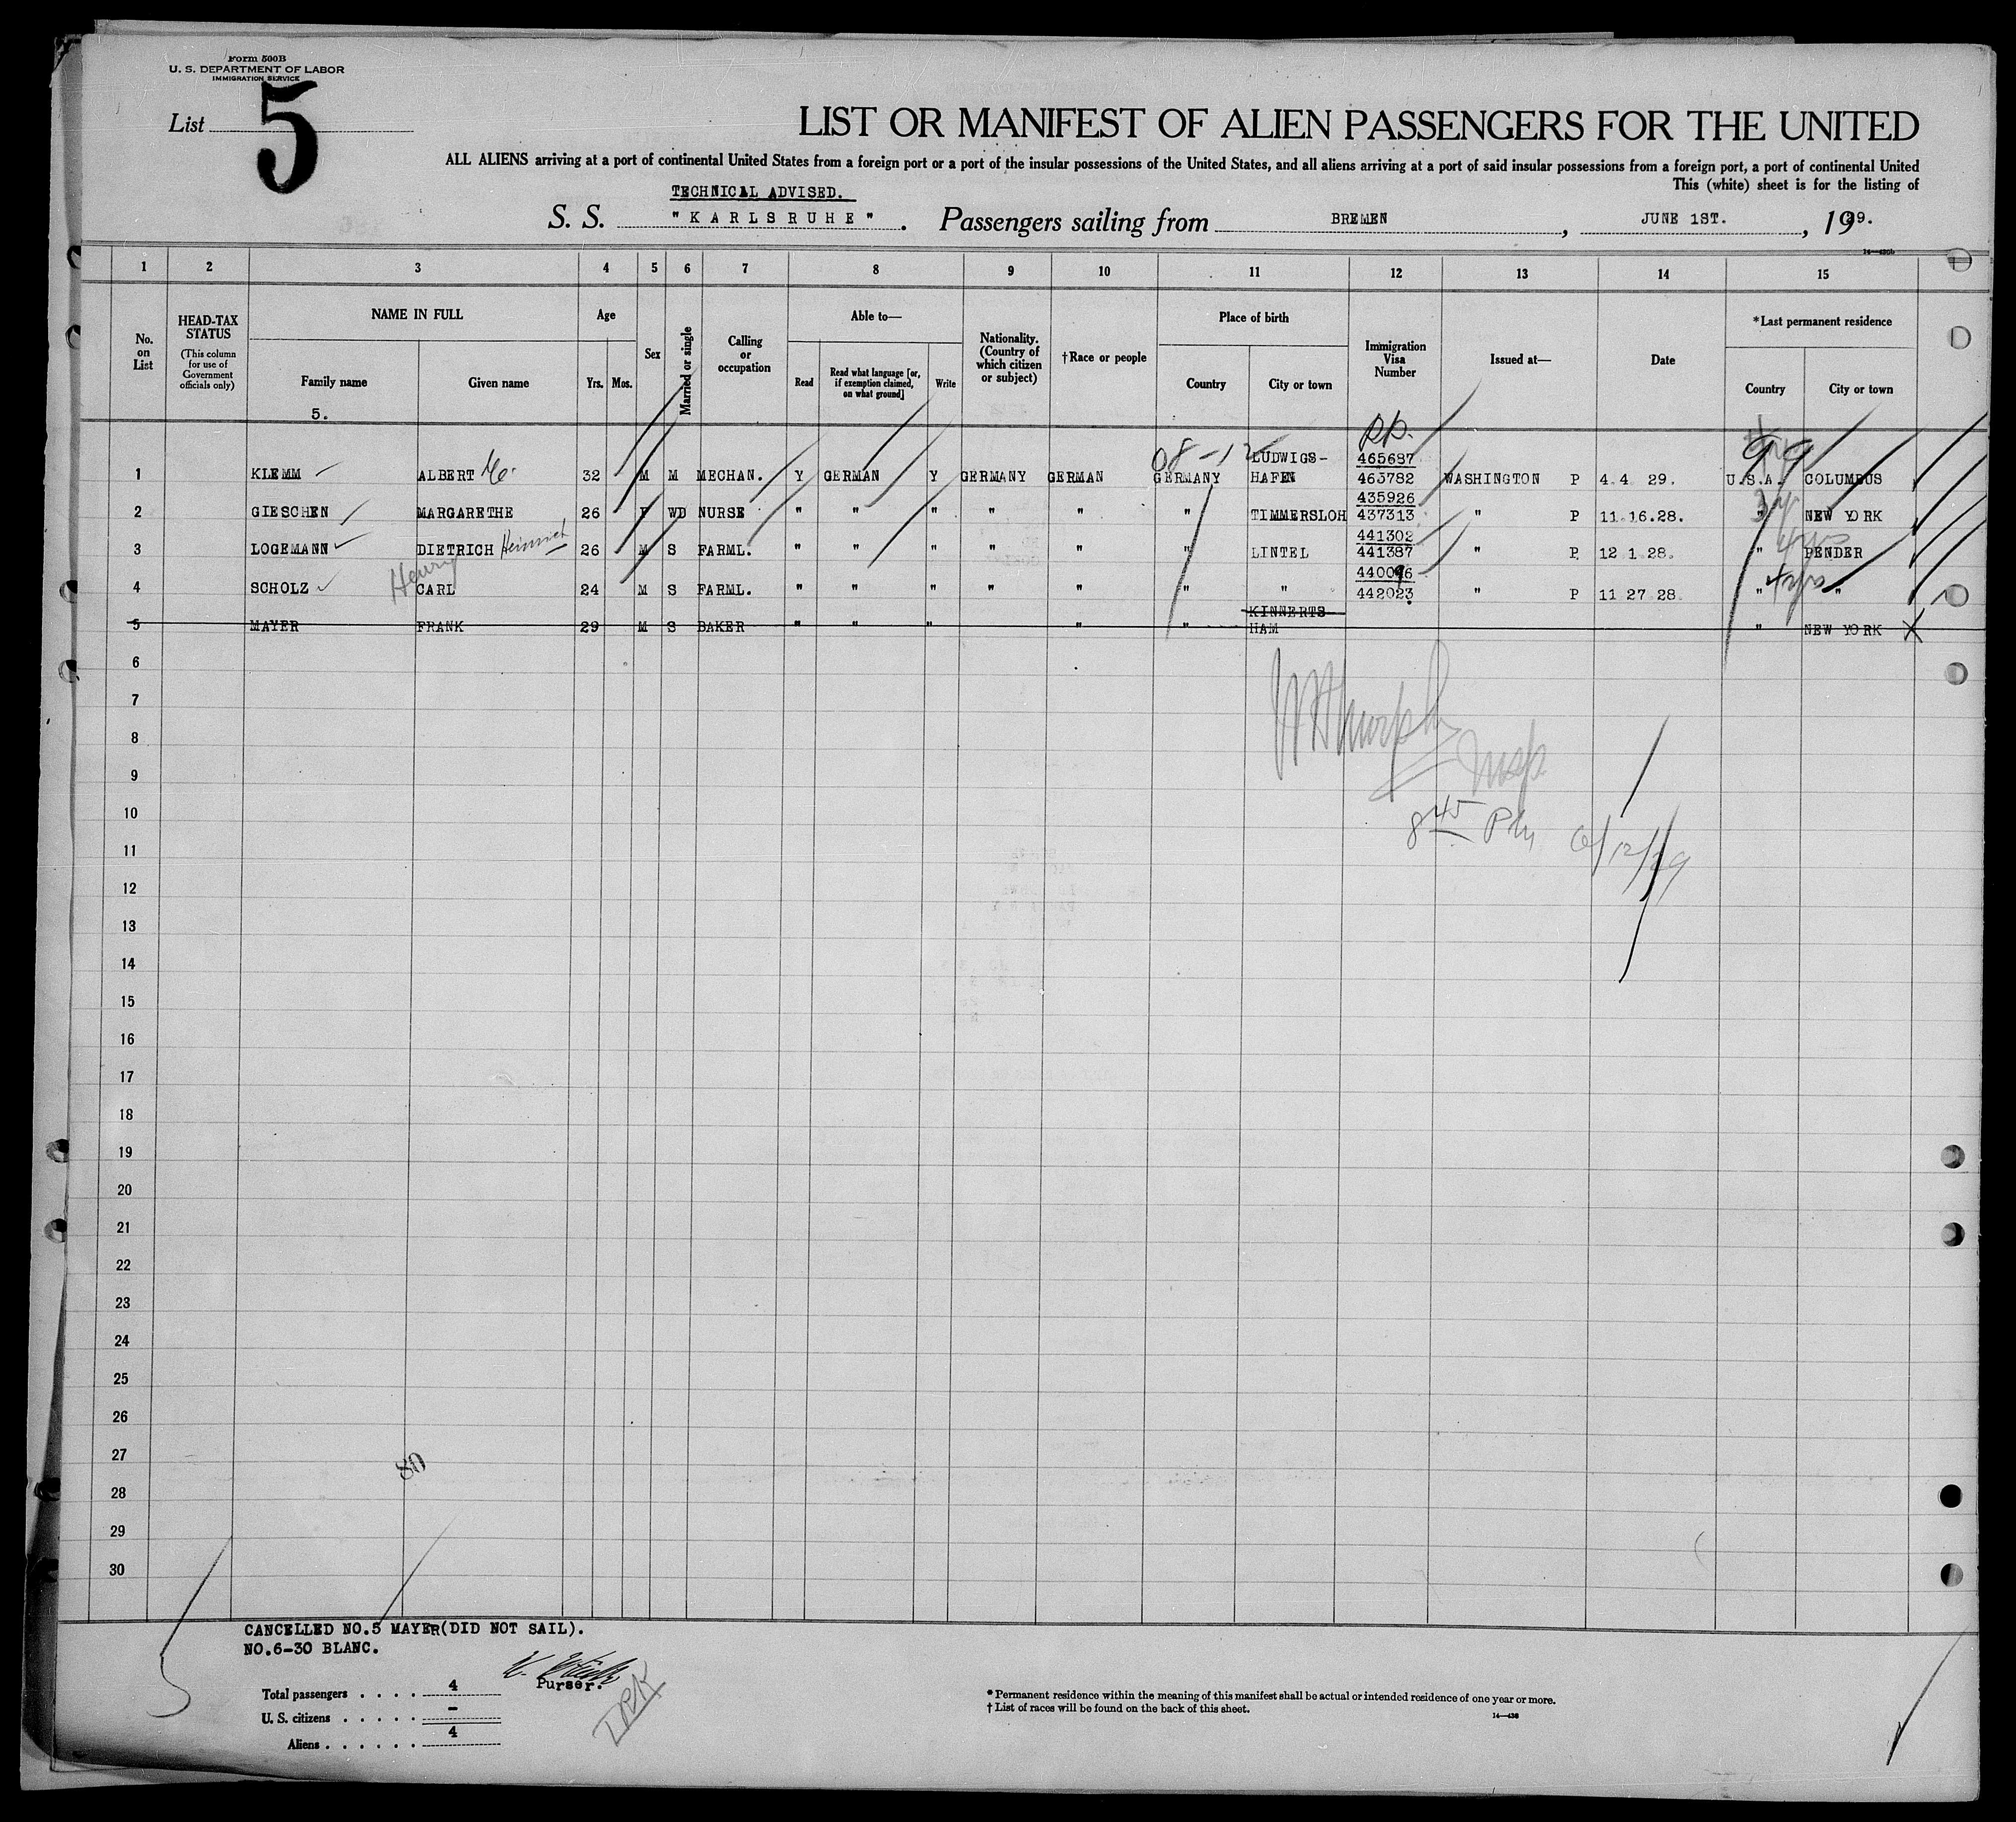 Form 500B
U. S. DEPARTMENT OF LABOR
IMMIGRATION SERVICE
List 5
LIST OR MANIFEST OF ALIEN PASSENGERS FOR THE UNITED
ALL ALIENS arriving at a port of continental United States from a foreign port or a port of the insular possessions of the United States, and all aliens arriving at a port of said insular possessions from a foreign port, a port of continental United
This (white) sheet is for the listing of
TECHNICAL ADVISED.
S. S. "KARLSRUHE". Passengers sailing from BREMEN, JUNE 1ST., 1929.
14—430b
1 2 3 4 5 6 7 8 9 10 11 12 13 14 15
No. on List
HEAD-TAX STATUS (This column for use of Government officials only)
NAME IN FULL
Family name Given name
5.
Age
Yrs. Mos.
Sex
Married or single
Calling or occupation
Able to—
Read Read what language [or, if exemption claimed, on what ground] Write
Nationality. (Country of which citizen or subject)
†Race or people
Place of birth
Country City or town
Immigration Visa Number
Issued at—
Date
*Last permanent residence
Country City or town
pp.
08-12 LUDWIGS- 465687
1 KLEMM ALBERT 32 M M MECHAN. Y GERMAN Y GERMANY GERMAN GERMANY HAFEN 463782 WASHINGTON P 4.4 29. U.S.A. COLUMBUS
435926
2 GIESCHEN MARGARETHE 26 F WD NURSE " " " " " " TIMMERSLOH 437313 " P 11.16.28. " NEW YORK
441302
3 LOGEMANN DIETRICH Heinrich 26 M S FARML. " " " " " " LINTEL 441387 " P. 12 1 28. " PENDER
Henry 440096
4 SCHOLZ CARL 24 M S FARML. " " " " " " " 442023 " P 11 27 28. " "
KINNERTS-
5 MAYER FRANK 29 M S BAKER " " " " " HAM " NEW YORK X
6
7
8
9
10
11
12
13
14
15
16
17
18
19
20
21
22
23
24
25
26
27
28
29
30
Murphy
Insp.
8 45 PM 6/12/29
80
CANCELLED NO.5 MAYER(DID NOT SAIL).
NO.6-30 BLANC.
Purser.
Total passengers . . . . 4
U. S. citizens . . . . . -
Aliens . . . . . . 4
* Permanent residence within the meaning of this manifest shall be actual or intended residence of one year or more.
† List of races will be found on the back of this sheet.
14—436